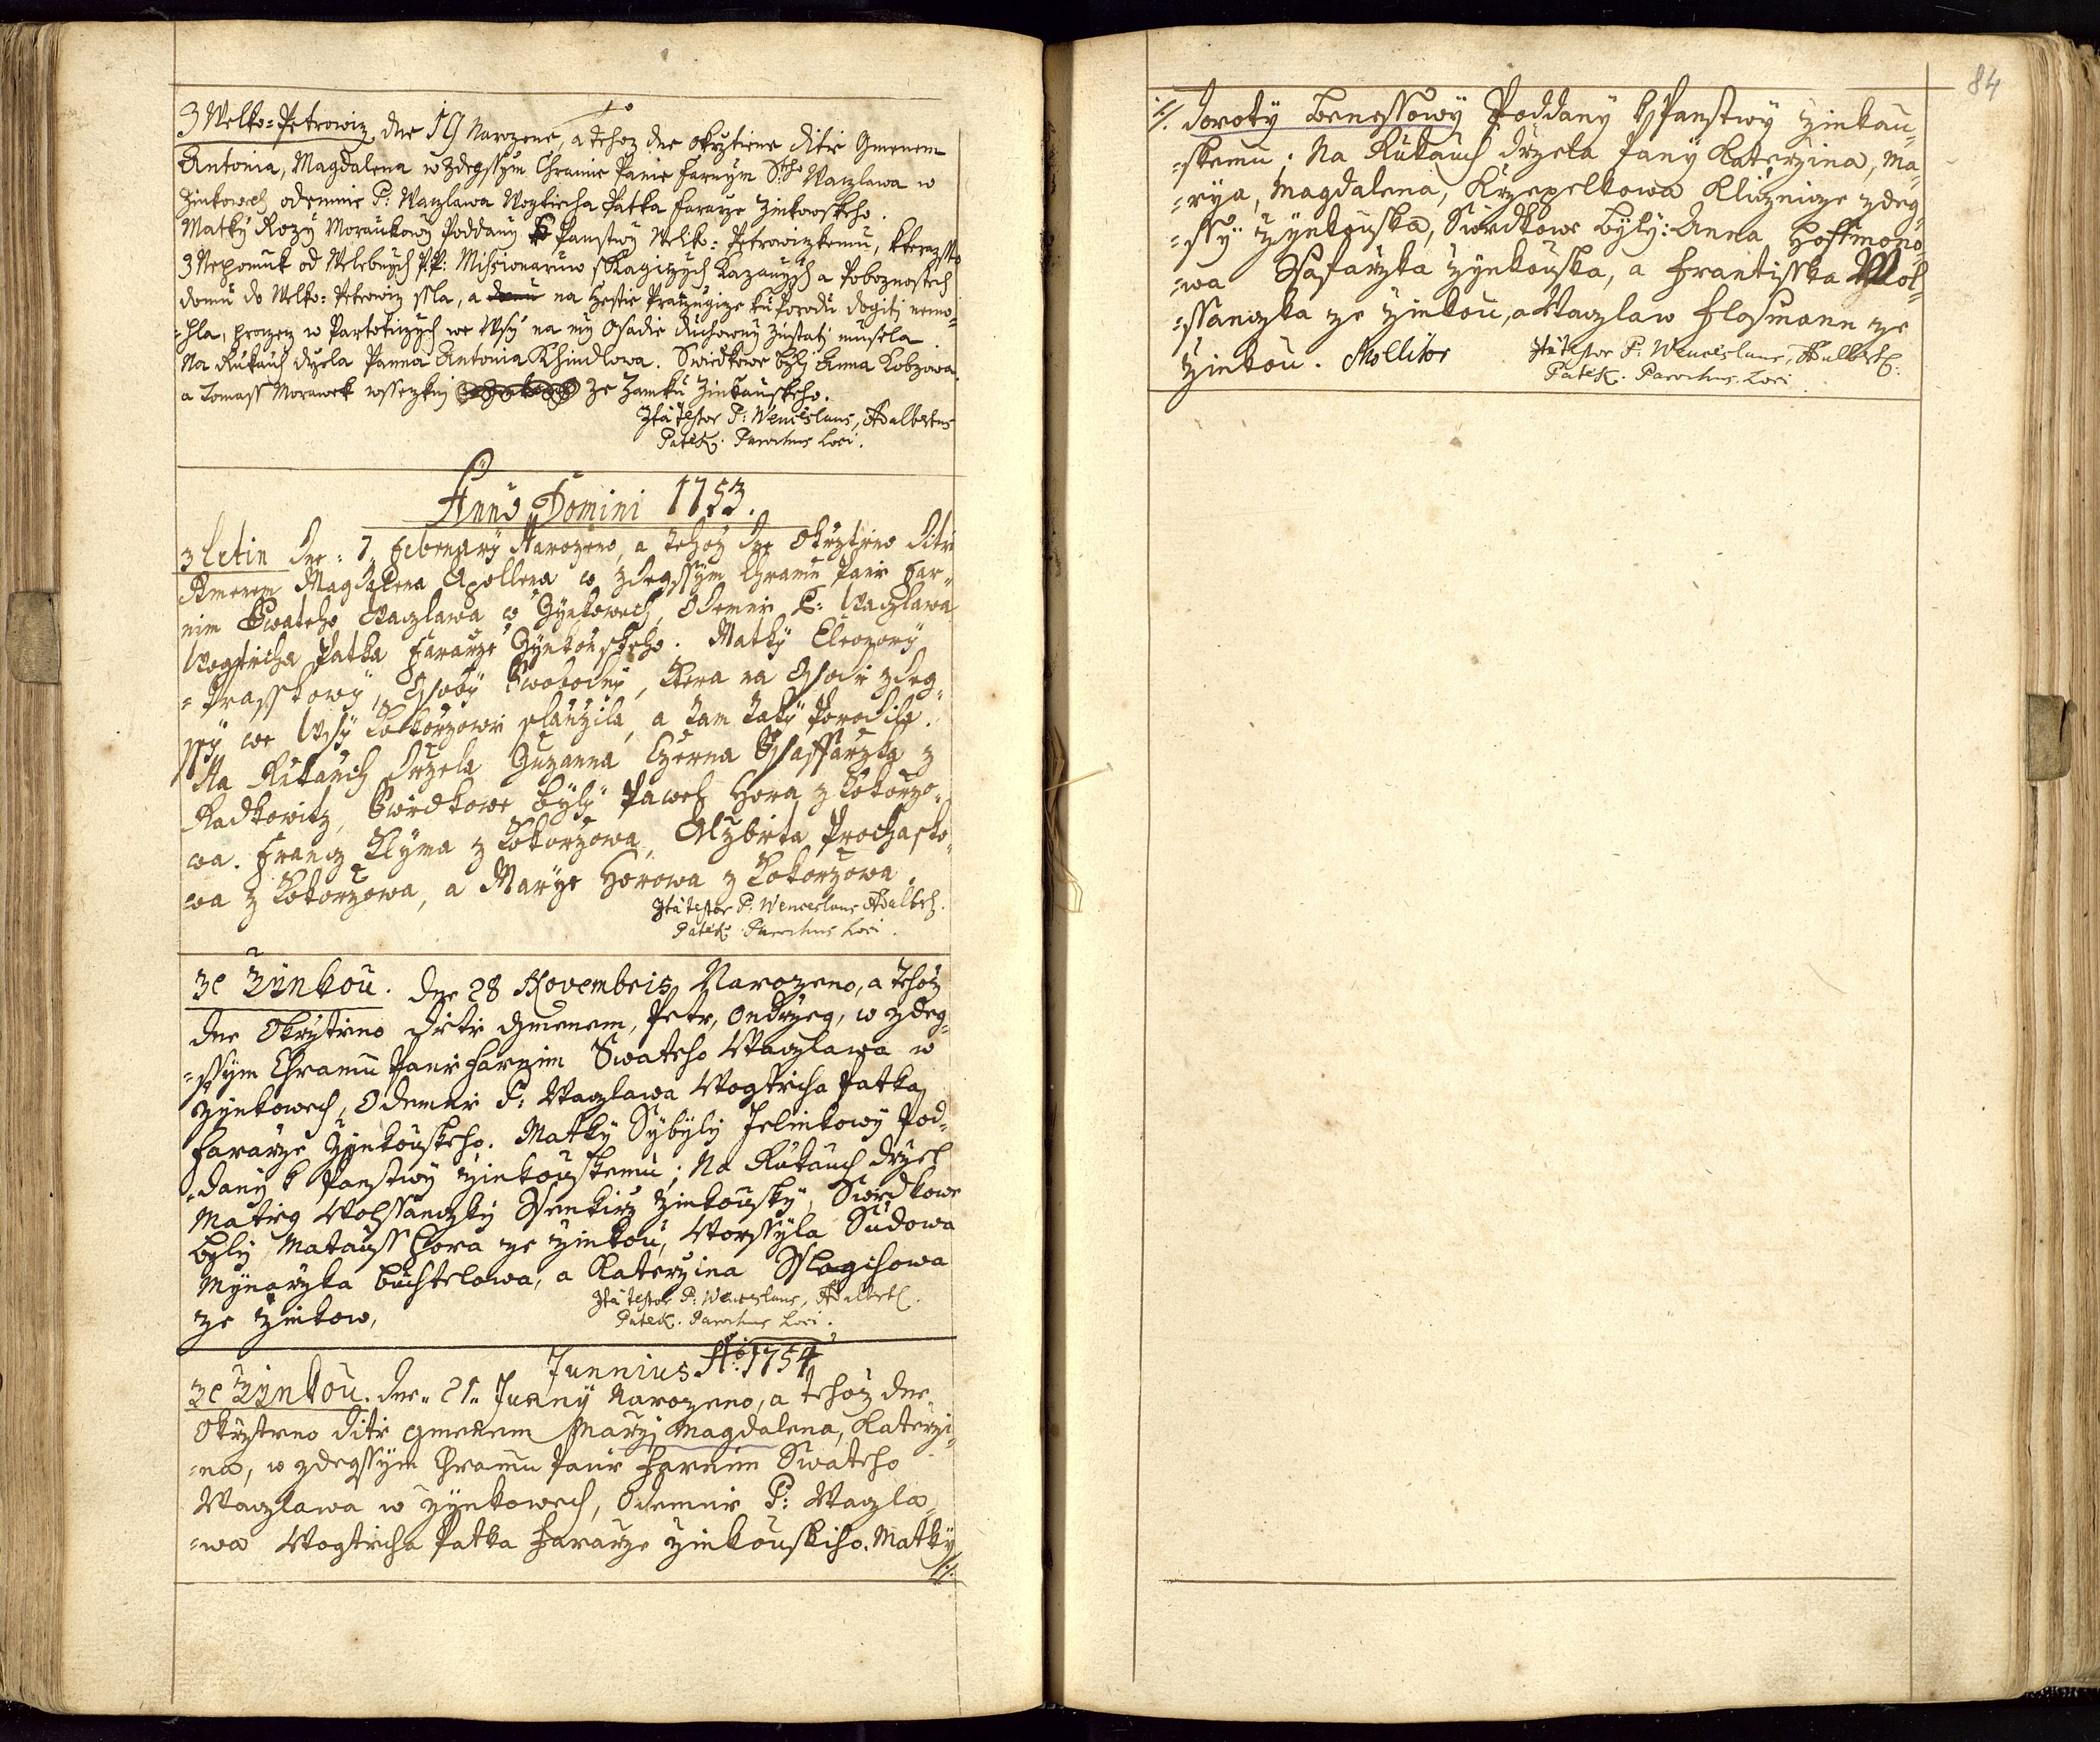 3 Welko=Petrowiz dne 19 Narozene, a tehoz dne okrztiene ditie Gmenem
Antonia, Magdalena w zdegssym Chramie Panie Farnym Sho Waczlawa w
Zinkowech odemnie P: Waczlawa Wogtiecha Patka Fararze Zinkowskeho.
Matky Rozy Morawkowy Poddany k Panstwy Welko=Petrowizkemu, kteraz sto
3 Nepomuk od Welebnych P.P: Missionaruw skragiczych Kazanych a Poboznostech
domu do Welko=Petrowiz ssla, a na Czestie Praczugicze ku Porodu dogiti nemo=
=hla, proczez w Partoticzych we Wsy na my Osadie duchowny zustati musela
Na Rukauch drzela Panna Antonia Khindlowa. Swiedkowe byly Anna Kobzowa
a Tomass Morawek wssezkny ze Zamku Zinkauskeho.
Ita testor P: Wenceslaus, Adalbertus
Patek. Parochus Loci.
Anno Domini 1753.
3 Letin dne: 7. February Narozeno, a tehoz dne Okrztieno ditie
Gmenem Magdalena Apollena w zdegssym Chramu Panie Far=
nim Swateho Waczlawa w Zynkowech, Odemnie P: Waczlawa
Wogtiecha Patka Fararze Zynkouskeho. Matky Eleonory
=Prasskowy, Osoby Swobodny, ktera na Osadie zdeg=
ssy we Wsy Kokorzowie slauzila, a tam taky Porodila.
Na Rukauch drzela Zuzanna Czerna Ssaffarzka z
Radkowitz, Swiedkowe byly Pawel Hora z Kokorzo=
wa. Francz Klyma z Kokorzowa, Alzbieta Prochasko=
wa z Kokorzowa, a Marye Horowa z Kokorzowa.
Ita testor P: Wenceslaus Adalbert.
Patek Parochus Loci.
3e Zynkou. dne 28 Novembris, Narozeno, a tehoz
dne Okrztieno ditie gmenem, Petr, Ondrzeg, w zdeg=
=ssym Chramu Panie Farnim Swateho Waczlawa w
Zynkowech, Odemnie P: Waczlawa Wogtiecha Patka
Fararze Zynkouskeho. Matky Sybyly Jelinkowy Pod=
=dany k Panstwy Zinkouskemu; Na Rukauch drzel
Matieg Wolssanczky Ssenkirz Zinkousky, Swiedkowe
byly Matauss Hora ze Zinkou, Worssyla Sudowa
Mynarzka Buchtelowa, a Katerzina Sslagisowa
ze Zinkow,
Ita testor P: Wenceslaus, Adalbert.
Patek. Parochus Loci.
Junnius Ao: 1754
3e Zynkou. dne 21. Junny Narozeno, a tehoz dne
Okrztieno ditie gmenem Marzi Magdalena, Katerzi=
=na, w zdegssym Chramu Panie Farnim Swateho
Waczlawa w Zynkowech, Odemnie P: Waczla=
=wa Wogtiecha Patka Fararze Zinkouskiho. Matky
./.
84
./. Doroty Benessowy Poddany k Panstwy Zinkau=
=skemu; Na Rukauch drzela Pany Katerzina, Ma=
=rya, Magdalena, Krzepelkowa Klicznicze zdeg=
=ssy Zynkouska, Swiedkowe byly: Anna Hoffmono=
=wa Ssafarzka Zynkouska, a Frantisska Wol=
=ssanczka ze Zinkou, a Waczlaw Flasmann ze
Zinkou. Mollitor
Ita testor P: Wenceslaus, Adalbert.
Patek. Parochus Loci.